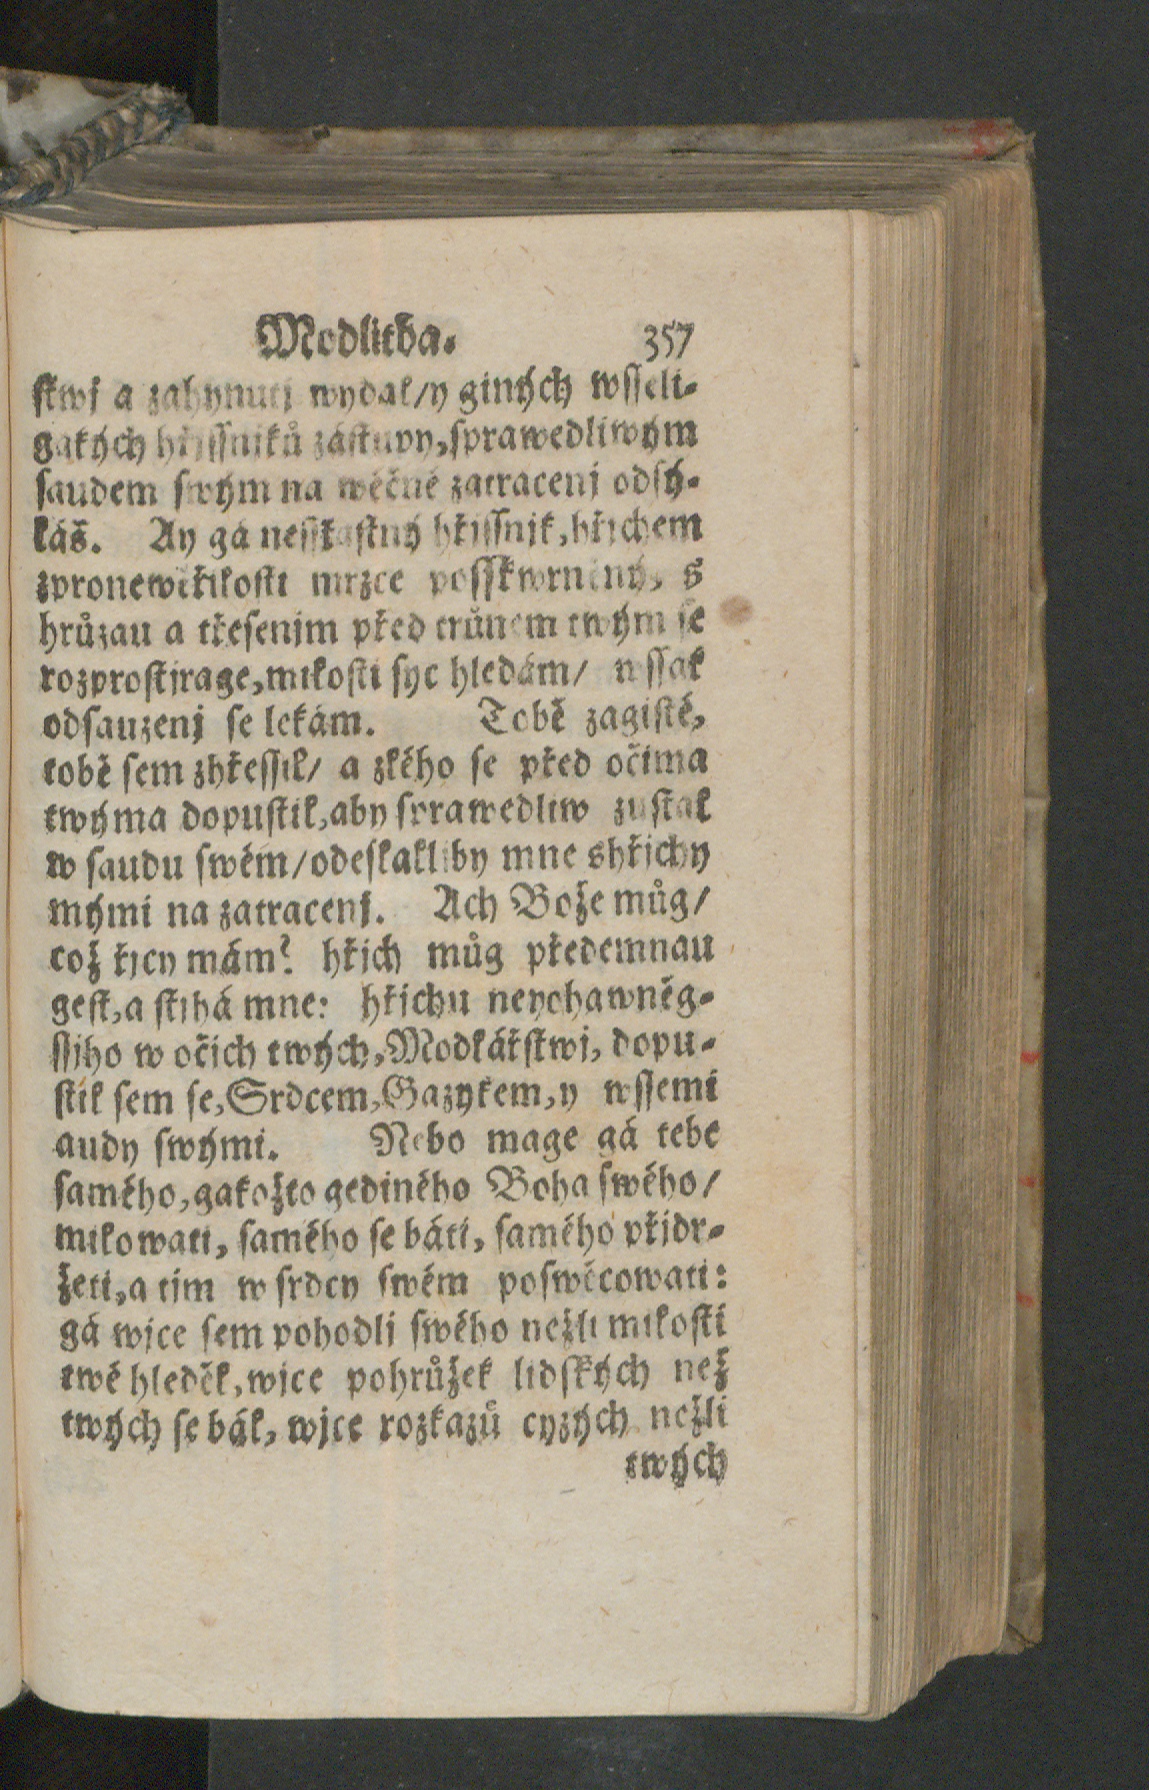 Modlitba. 357
stwj a zahynutj wydal/y giných wsseli-
gakých hřjssnjků zástupy, sprawedliwým
saudem swým na wěčné zatracenj odsý-
láš. Ay gá nessťastný hřjssnjk, hřjchem
zproněwěřilosti mrzce posskwrněný, s
hrůzau a třesenjm před trůnem twým se
rozprostjrage, milosti syc hledám/ wssak
odsauzenj se lekám. Tobě zagisté,
tobě sem zhřessil/ a zlého se před očima
twýma dopustil, aby sprawedliw zustal
w saudu swém/ odeslalliby mne shřjchy
mými na zatracenj. Ach Bože můg/
což řjcy mám? hřjch můg předemnau
gest, a stjhá mne: hřjchu neyohawněg-
ssjho w očjch twých, Modlářstwj, dopu-
stil sem se, Srdcem, Gazykem, y wssemi
audy swými. Nebo mage gá tebe
samého, gakožto gediného Boha swého/
milowati, samého se báti, samého přjdr-
žeti, a tjm w srdcy swém poswěcowati:
gá wjce sem pohodlj swého nežli milosti
twé hleděl, wjce pohrůžek lidských než
twých se bál, wjce rozkazů cyzých nežli
twých